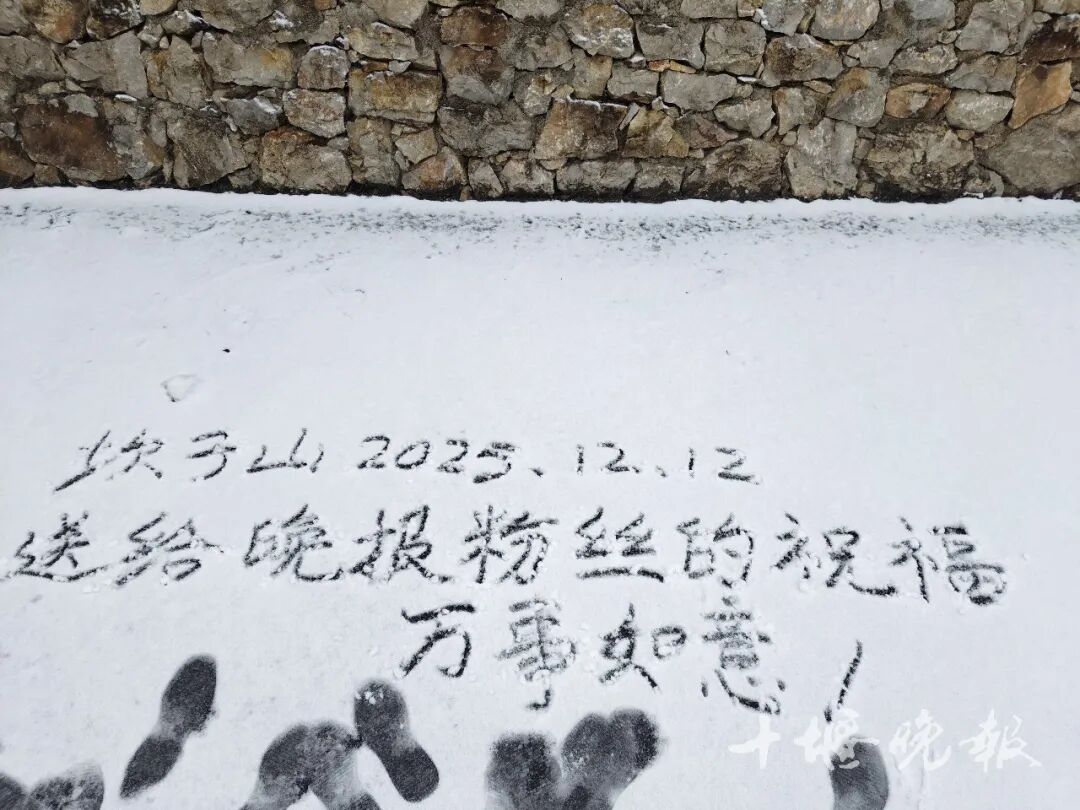 坎子山 2025.12.12
送给晚报粉丝的祝福
万事如意！
十堰晚报